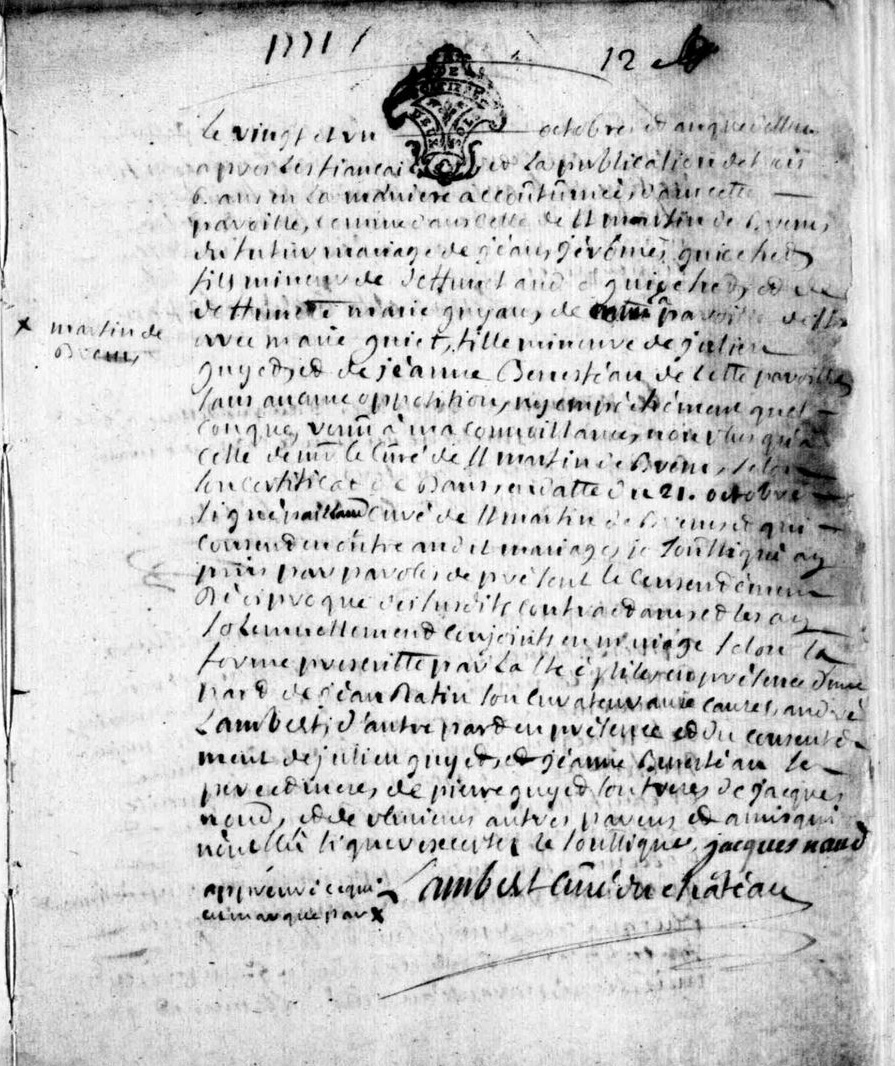 1771
12
Le vingt et un octobre et an que dessus
apres les fiancai et La publication de trois
bans en La maniere accoûtumée, dans cette
paroisse, comme dans celle de St martin de Brem,
du futur mariage de jéan jérômes guiechet
fils mineur de deffunct andré guiechet, et de
deffuncte marie guyau, de paroisse de St x
avec marie guiet, fille mineure de julien
guyet, et de jéanne Benestéau de cette paroisse
sans aucune opposition, ny empêchément quel-
conque, venu à ma connoissance, non plus qu'à
celle de mr le Curé de St martin de Brem, selon
son certificat de bans, en datte du 21. octobre
signé paillaud curé de St martin de Brem, et qui
consend en oûtre audit mariage, je soussigné ay
pris par paroles de présent le consendement
Réciproque des susdits contractans, et les ay
solemnellement conjoints en mariage selon la
forme prescritte par La Ste église, en présence d'une
pard de jéan Ratin son curateur aux causes, andré
Lambert, d'autre pard en présence et du consente-
ment de julien guyet, et jéanne Benestéau ses
pere et meres, de pierre guyet son frere, de jacques
naud, et de plusieurs autres parens et amis qui
n'ont sçu signer excepter le soussigné, jacques naud
approuvé ce qui
en marque par x
Lambert Curé du château
x martin de
Brem,